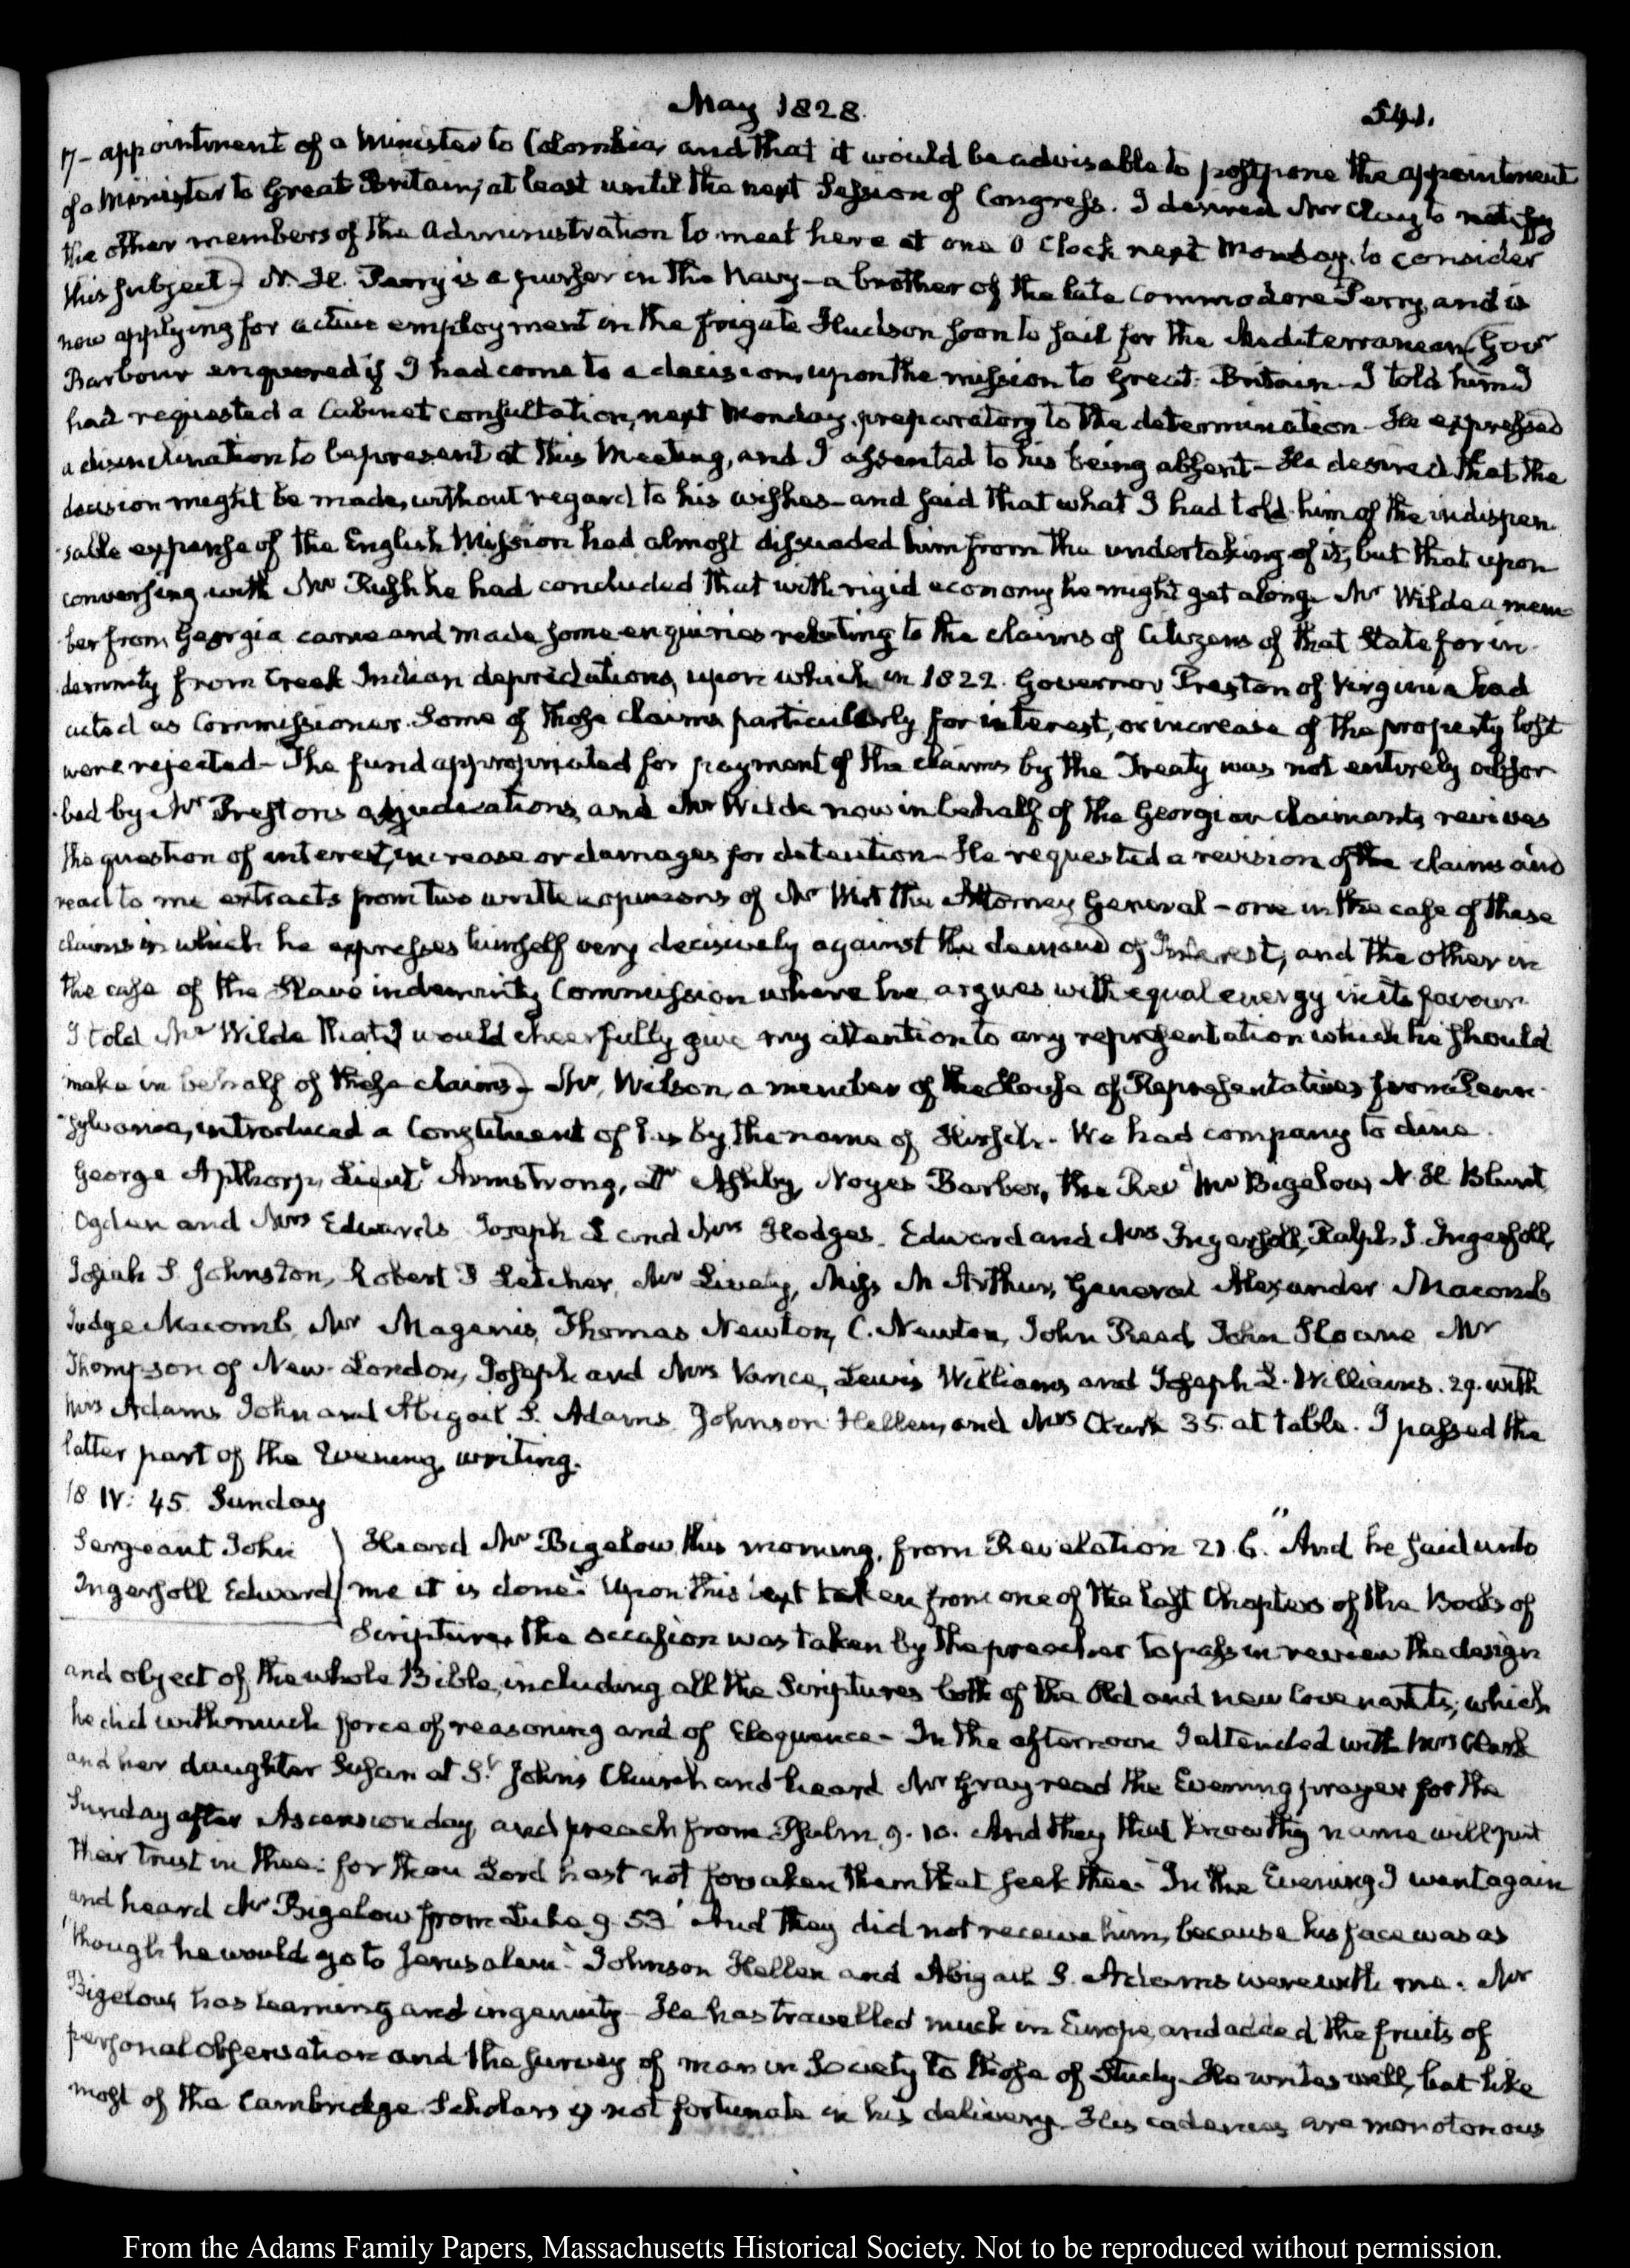 May 1828.
541.
17- appointment of a Minister to Colombia, and that it would be advisable to postpone the appointment
of a Minister to Great Britain, at least until the next Session of Congress. I desired Mr Clay to notify
the other members of the Administration to meet here at one O Clock next Monday, to consider
this subject) - N. H. Perry is a purser in the Navy - a brother of the late Commodore Perry, and is
now applying for active employment in the frigate Hudson soon to sail for the Mediterranean (Govr
Barbour enquired if I had come to a decision, upon the mission to Great Britain - I told him I
had requested a Cabinet consultation, next Monday, preparatory to the determination - He expressed
a disinclination to be present at this Meeting, and I assented to his being absent - He desired that the
decision might be made, without regard to his wishes - and said that what I had told him of the indispen
-sable expense of the English Mission had almost dissuaded him from the undertaking of it, but that upon
conversing with Mr Rush he had concluded that with rigid economy he might get along. Mr Wilde a mem
ber from Georgia came and made some enquiries relating to the claims of Citizens of that State for in-
demnity from Creek Indian depredations, upon which in 1822. Governor Preston of Virginia had
acted as Commissioner. Some of those claims particularly for interest, or increase of the property lost
were rejected - The fund appropriated for payment of the claims by the Treaty was not entirely absor
-bed by Mr Prestons adjudications, and Mr Wilde now in behalf of the Georgian claimants, revives
the question of interest, increase or damages for detention - He requested a revision of the claims and
read to me extracts from two written opinions of Mr Wirt the Attorney General - one in the case of these
claims in which he expresses himself very decisively against the demand of Interest, and the other in
the case of the Slave indemnity Commission where he argues with equal energy in its favour
I told Mr Wilde that I would cheerfully give my attention to any representation which he should
make in behalf of these claims) - Mr. Wilson, a member of the House of Representatives from Penn-
-sylvania, introduced a Constituent of his by the name of Hirsh. - We had company to dine.
George Apthorp, Lieutt Armstrong, Mr Ashby, Noyes Barber, the Revd Mr Bigelow, N. H. Blunt,
Ogden and Mrs Edwards Joseph L and Mrs Hodges. Edward and Mrs Ingersoll, Ralph I. Ingersoll,
Josiah S. Johnston, Robert P Letcher, Mr Lively, Miss M Arthur, General Alexander Macomb
Judge Macomb, Mr Magenis, Thomas Newton, C. Newton, John Reed, John Sloane, Mr
Thompson of New-London, Joseph and Mrs Vance, Lewis Williams and Joseph L. Williams. 29. with
Mrs Adams. John and Abigail S. Adams. Johnson Hellen, and Mrs Clark 35. at table. I passed the
latter part of the Evening, writing.
18. IV: 45. Sunday
Sergeant John
Ingersoll Edward
Heard Mr Bigelow, this morning, from Revelation 21. 6. "And he said unto
me it is done." Upon this text taken from one of the last Chapters of the Books of
Scripture, the occasion was taken by the preacher to pass in review the design
and object of the whole Bible, including all the Scriptures both of the Old and new Covenants; which
he did with much force of reasoning and of Eloquence - In the afternoon I attended with Mrs Clark
and her daughter Susan at St Johns Church and heard Mr Gray read the Evening prayer for the
Sunday after Ascension day, and preach from Psalm 9. 10. And they that know thy name will put
their trust in thee: for thou Lord hast not forsaken them that seek thee - In the Evening I went again
and heard Mr Bigelow from Luke 9. 53 "And they did not receive him, because his face was as
"though he would go to Jerusalem." Johnson Hellen and Abigail S. Adams were with me. Mr
Bigelow, has learning and ingenuity - He has travelled much in Europe, and added the fruits of
personal observation and the survey of man in Society to those of Study. He writes well, but like
most of the Cambridge Scholars is not fortunate in his delivery. His cadences are monotonous
From the Adams Family Papers, Massachusetts Historical Society. Not to be reproduced without permission.